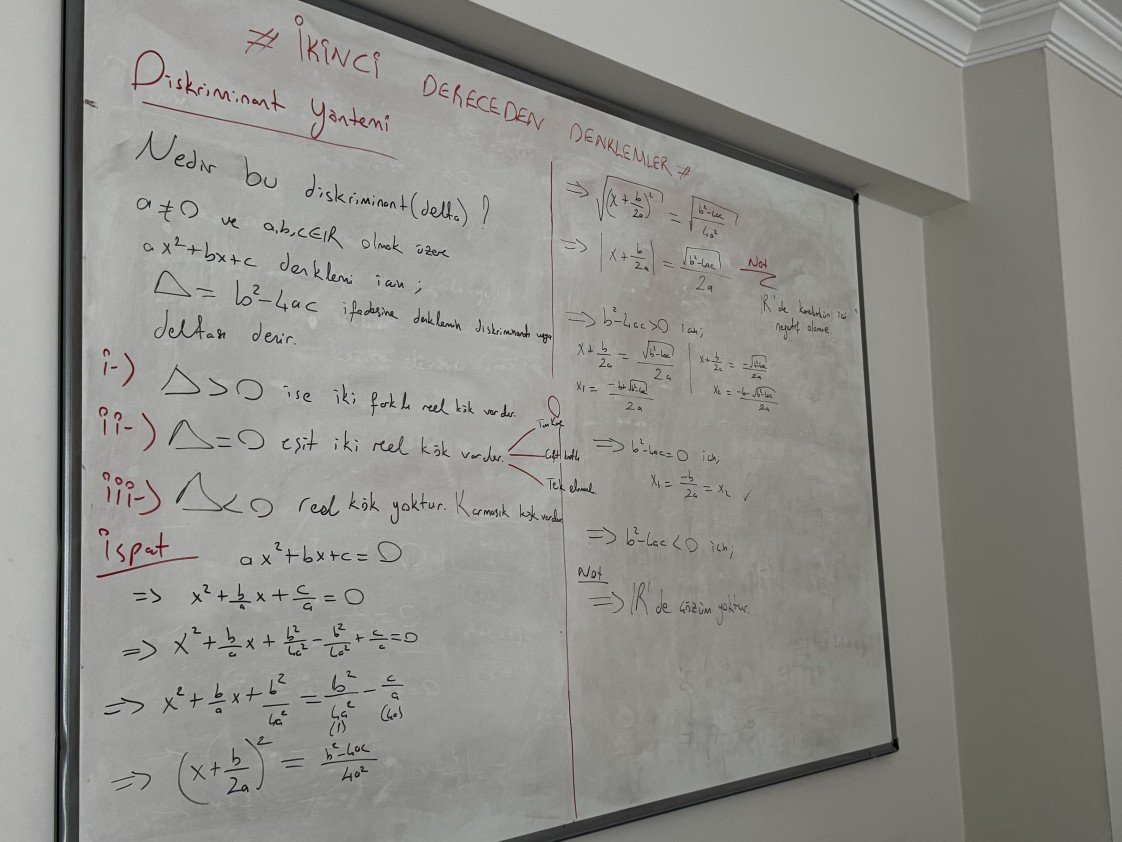 # İKİNCİ DERECEDEN DENKLEMLER #
Diskriminant Yöntemi
Nedir bu diskriminant (delta) ?
a ≠ 0 ve a,b,c∈ℝ olmak üzere
ax²+bx+c denklemi için ;
Δ = b²-4ac ifadesine denklemin diskriminantı veya
deltası denir.
i-) Δ > 0 ise iki farklı reel kök vardır.
ii-) Δ = 0 eşit iki reel kök vardır.
Tam kare
Çift katlı
Tek eleman.
iii-) Δ < 0 reel kök yoktur. Karmaşık kök vardır
ispat
ax²+bx+c = 0
=> x² + b/a x + c/a = 0
=> x² + b/a x + b²/4a² - b²/4a² + c/a = 0
=> x² + b/a x + b²/4a² = b²/4a² - c/a
(1) (4a)
=> (x + b/2a)² = b²-4ac/4a²
=> √(x + b/2a)² = √b²-4ac/4a²
=> |x + b/2a| = √b²-4ac/2a
Not
ℝ'de karekökün içi
negatif olamaz
=> b²-4ac>0 için;
x + b/2a = √b²-4ac/2a | x + b/2a = -√b²-4ac/2a
x₁ = -b+√b²-4ac/2a | x₂ = -b-√b²-4ac/2a
=> b²-4ac=0 için,
x₁ = -b/2a = x₂ ✓
=> b²-4ac < 0 için;
Not
=> ℝ'de çözüm yoktur.